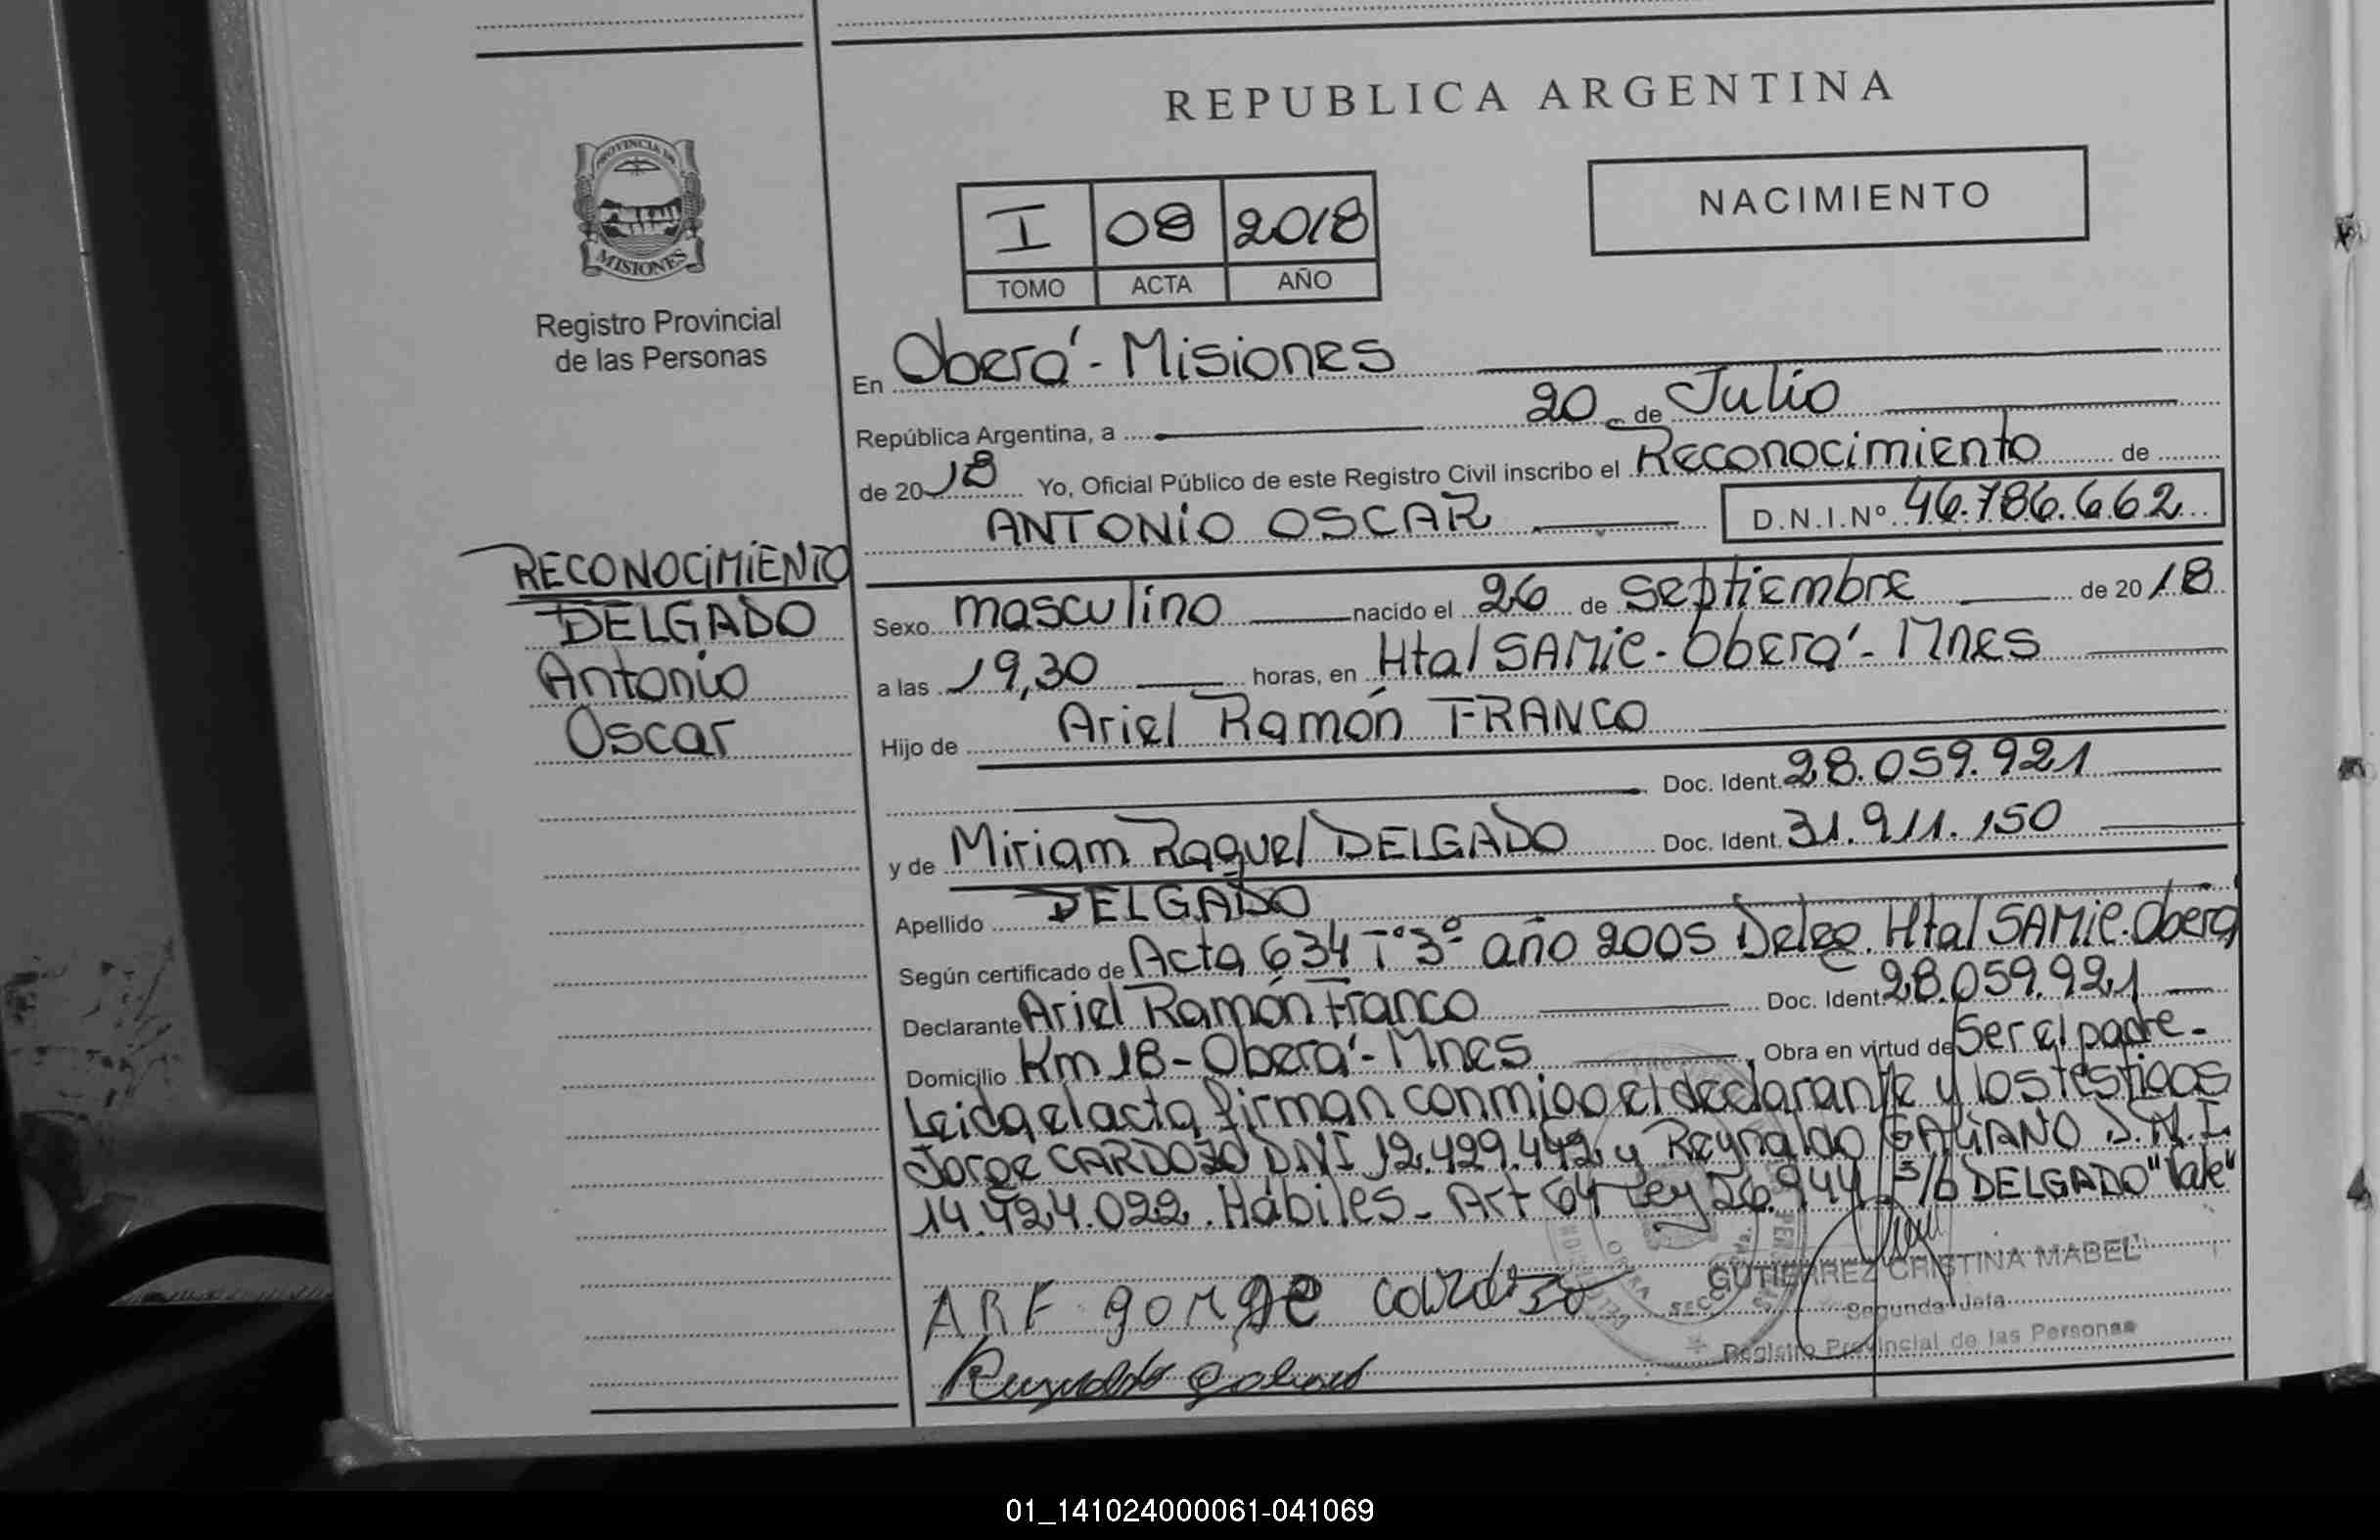 REPUBLICA ARGENTINA
PROVINCIA DE
MISIONES
Registro Provincial
de las Personas
I 08 2018
TOMO ACTA AÑO
NACIMIENTO
En Oberá - Misiones
República Argentina, a 20 de Julio
de 2018 Yo, Oficial Público de este Registro Civil inscribo el Reconocimiento de
ANTONIO OSCAR D.N.I.Nº 46.786.662
RECONOCIMIENTO
DELGADO
Antonio
Oscar
Sexo masculino nacido el 26 de Septiembre de 2018
a las 19,30 horas, en Htal SAMIC - Oberá - Mnes
Hijo de Ariel Ramón FRANCO
Doc. Ident. 28.059.921
y de Miriam Raquel DELGADO Doc. Ident. 31.911.150
Apellido DELGADO
Según certificado de Acta 634 Tº 3º año 2005 Deleg. Htal SAMIC. Obera
Declarante Ariel Ramón Franco Doc. Ident. 28.059.921
Domicilio Km 18 - Oberá - Mnes Obra en virtud de Ser el padre -
Leida el acta firman conmigo el declarante y los testigos
Jorge CARDOZO DNI 12.429.442 y Reynaldo GALIANO D.N.I.
14.424.022. Hábiles - Art 64 Ley 26.944 s/b DELGADO "Vale"
GUTIERREZ CRISTINA MABEL
Segunda Jefa
Registro Provincial de las Personas
ARF gorge cardozo
01_141024000061-041069